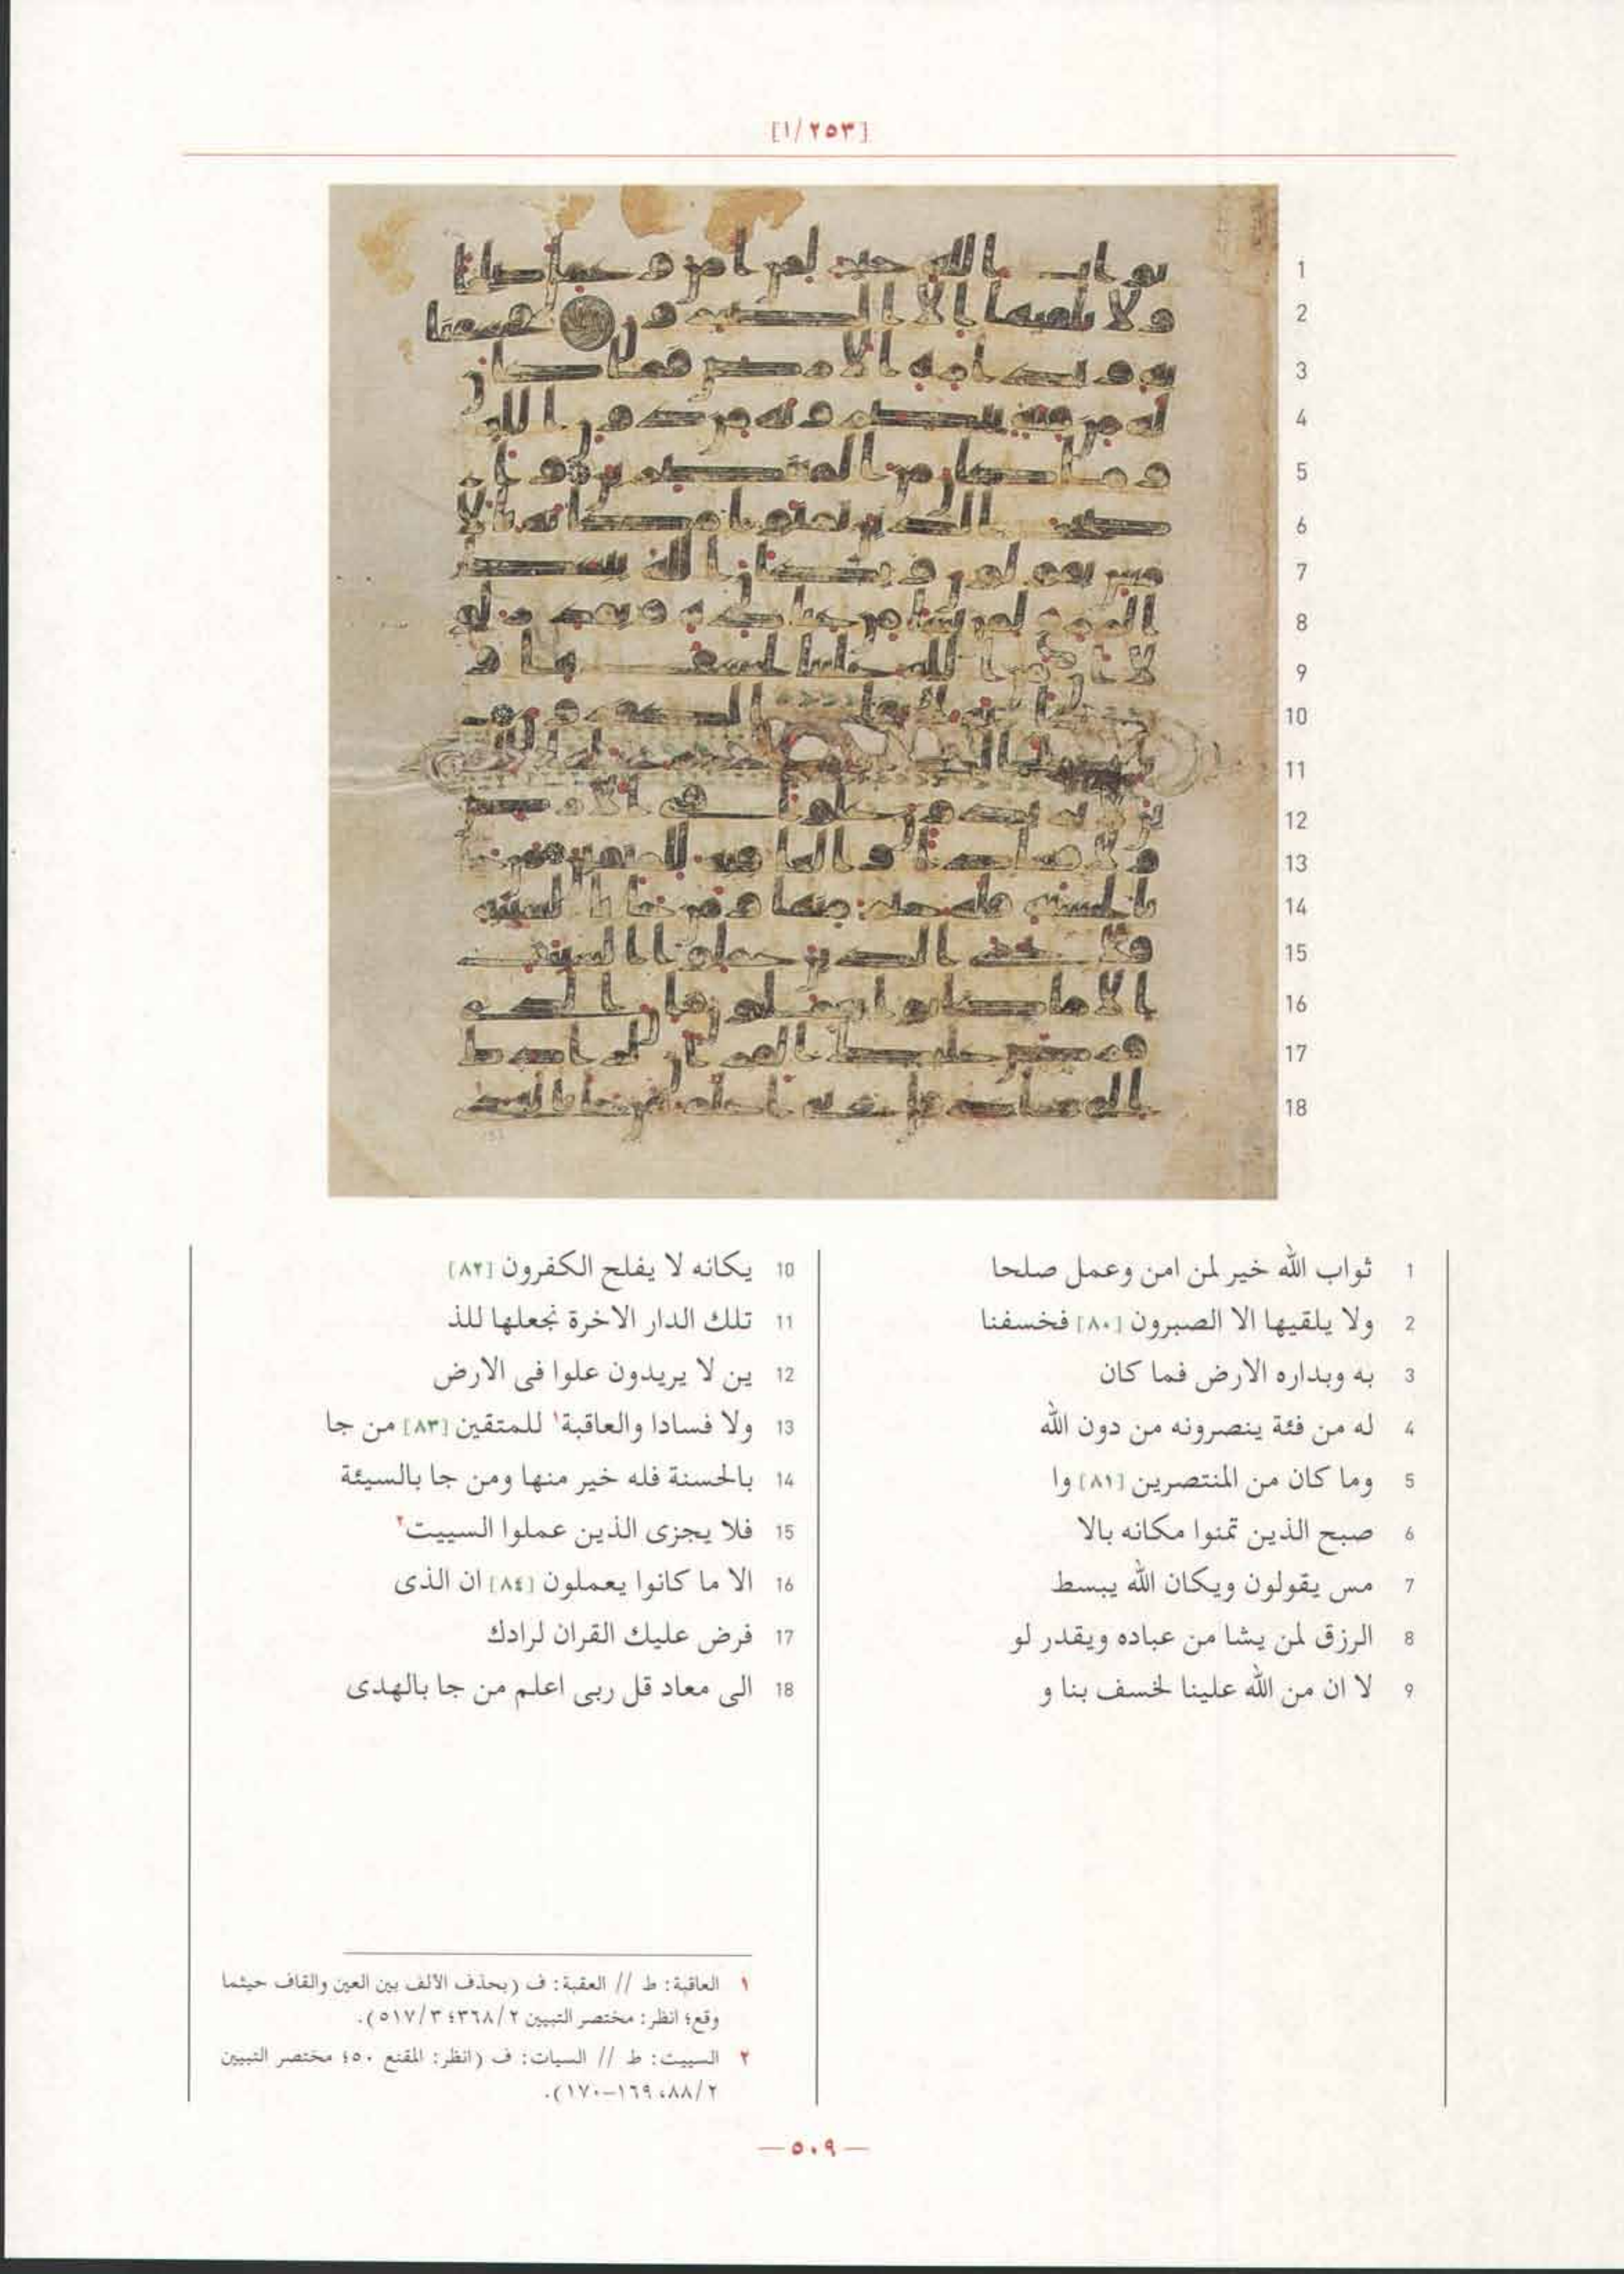 [١/٢٥٣]
1
2
3
4
5
6
7
8
9
10
11
12
13
14
15
16
17
18
1 ثواب الله خير لمن امن وعمل صلحا
2 ولا يلقيها الا الصبرون [٨٠] فخسفنا
3 به وبداره الارض فما كان
4 له من فئة ينصرونه من دون الله
5 وما كان من المنتصرين [٨١] وا
6 صبح الذين تمنوا مكانه بالا
7 مس يقولون ويكان الله يبسط
8 الرزق لمن يشا من عباده ويقدر لو
9 لا ان من الله علينا لخسف بنا و
10 يكانه لا يفلح الكفرون [٨٢]
11 تلك الدار الاخرة نجعلها للذ
12 ين لا يريدون علوا فى الارض
13 ولا فسادا والعاقبة١ للمتقين [٨٣] من جا
14 بالحسنة فله خير منها ومن جا بالسيئة
15 فلا يجزى الذين عملوا السييت٢
16 الا ما كانوا يعملون [٨٤] ان الذى
17 فرض عليك القران لرادك
18 الى معاد قل ربى اعلم من جا بالهدى
١ العاقبة: ط // العقبة: ف (بحذف الألف بين العين والقاف حيثما
وقع؛ انظر: مختصر التبيين ٢/٣٦٨؛ ٣/٥١٧).
٢ السييت: ط // السيات: ف (انظر: المقنع ٥٠؛ مختصر التبيين
٢/٨٨، ١٦٩-١٧٠).
— ٥٠٩ —